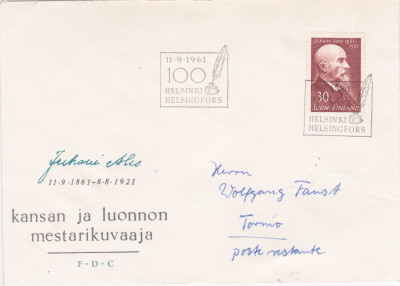 11·9·1961
100
HELSINKI
HELSINGFORS
JUHANI AHO 1861-
1921
30
SUOMI-FINLAND
HELSINKI
HELSINGFORS
Juhani Aho
11·9·1861–8·8·1921
kansan ja luonnon
mestarikuvaaja
F·D·C
Herrn
Wolfgang Faust
Tornio
poste restante